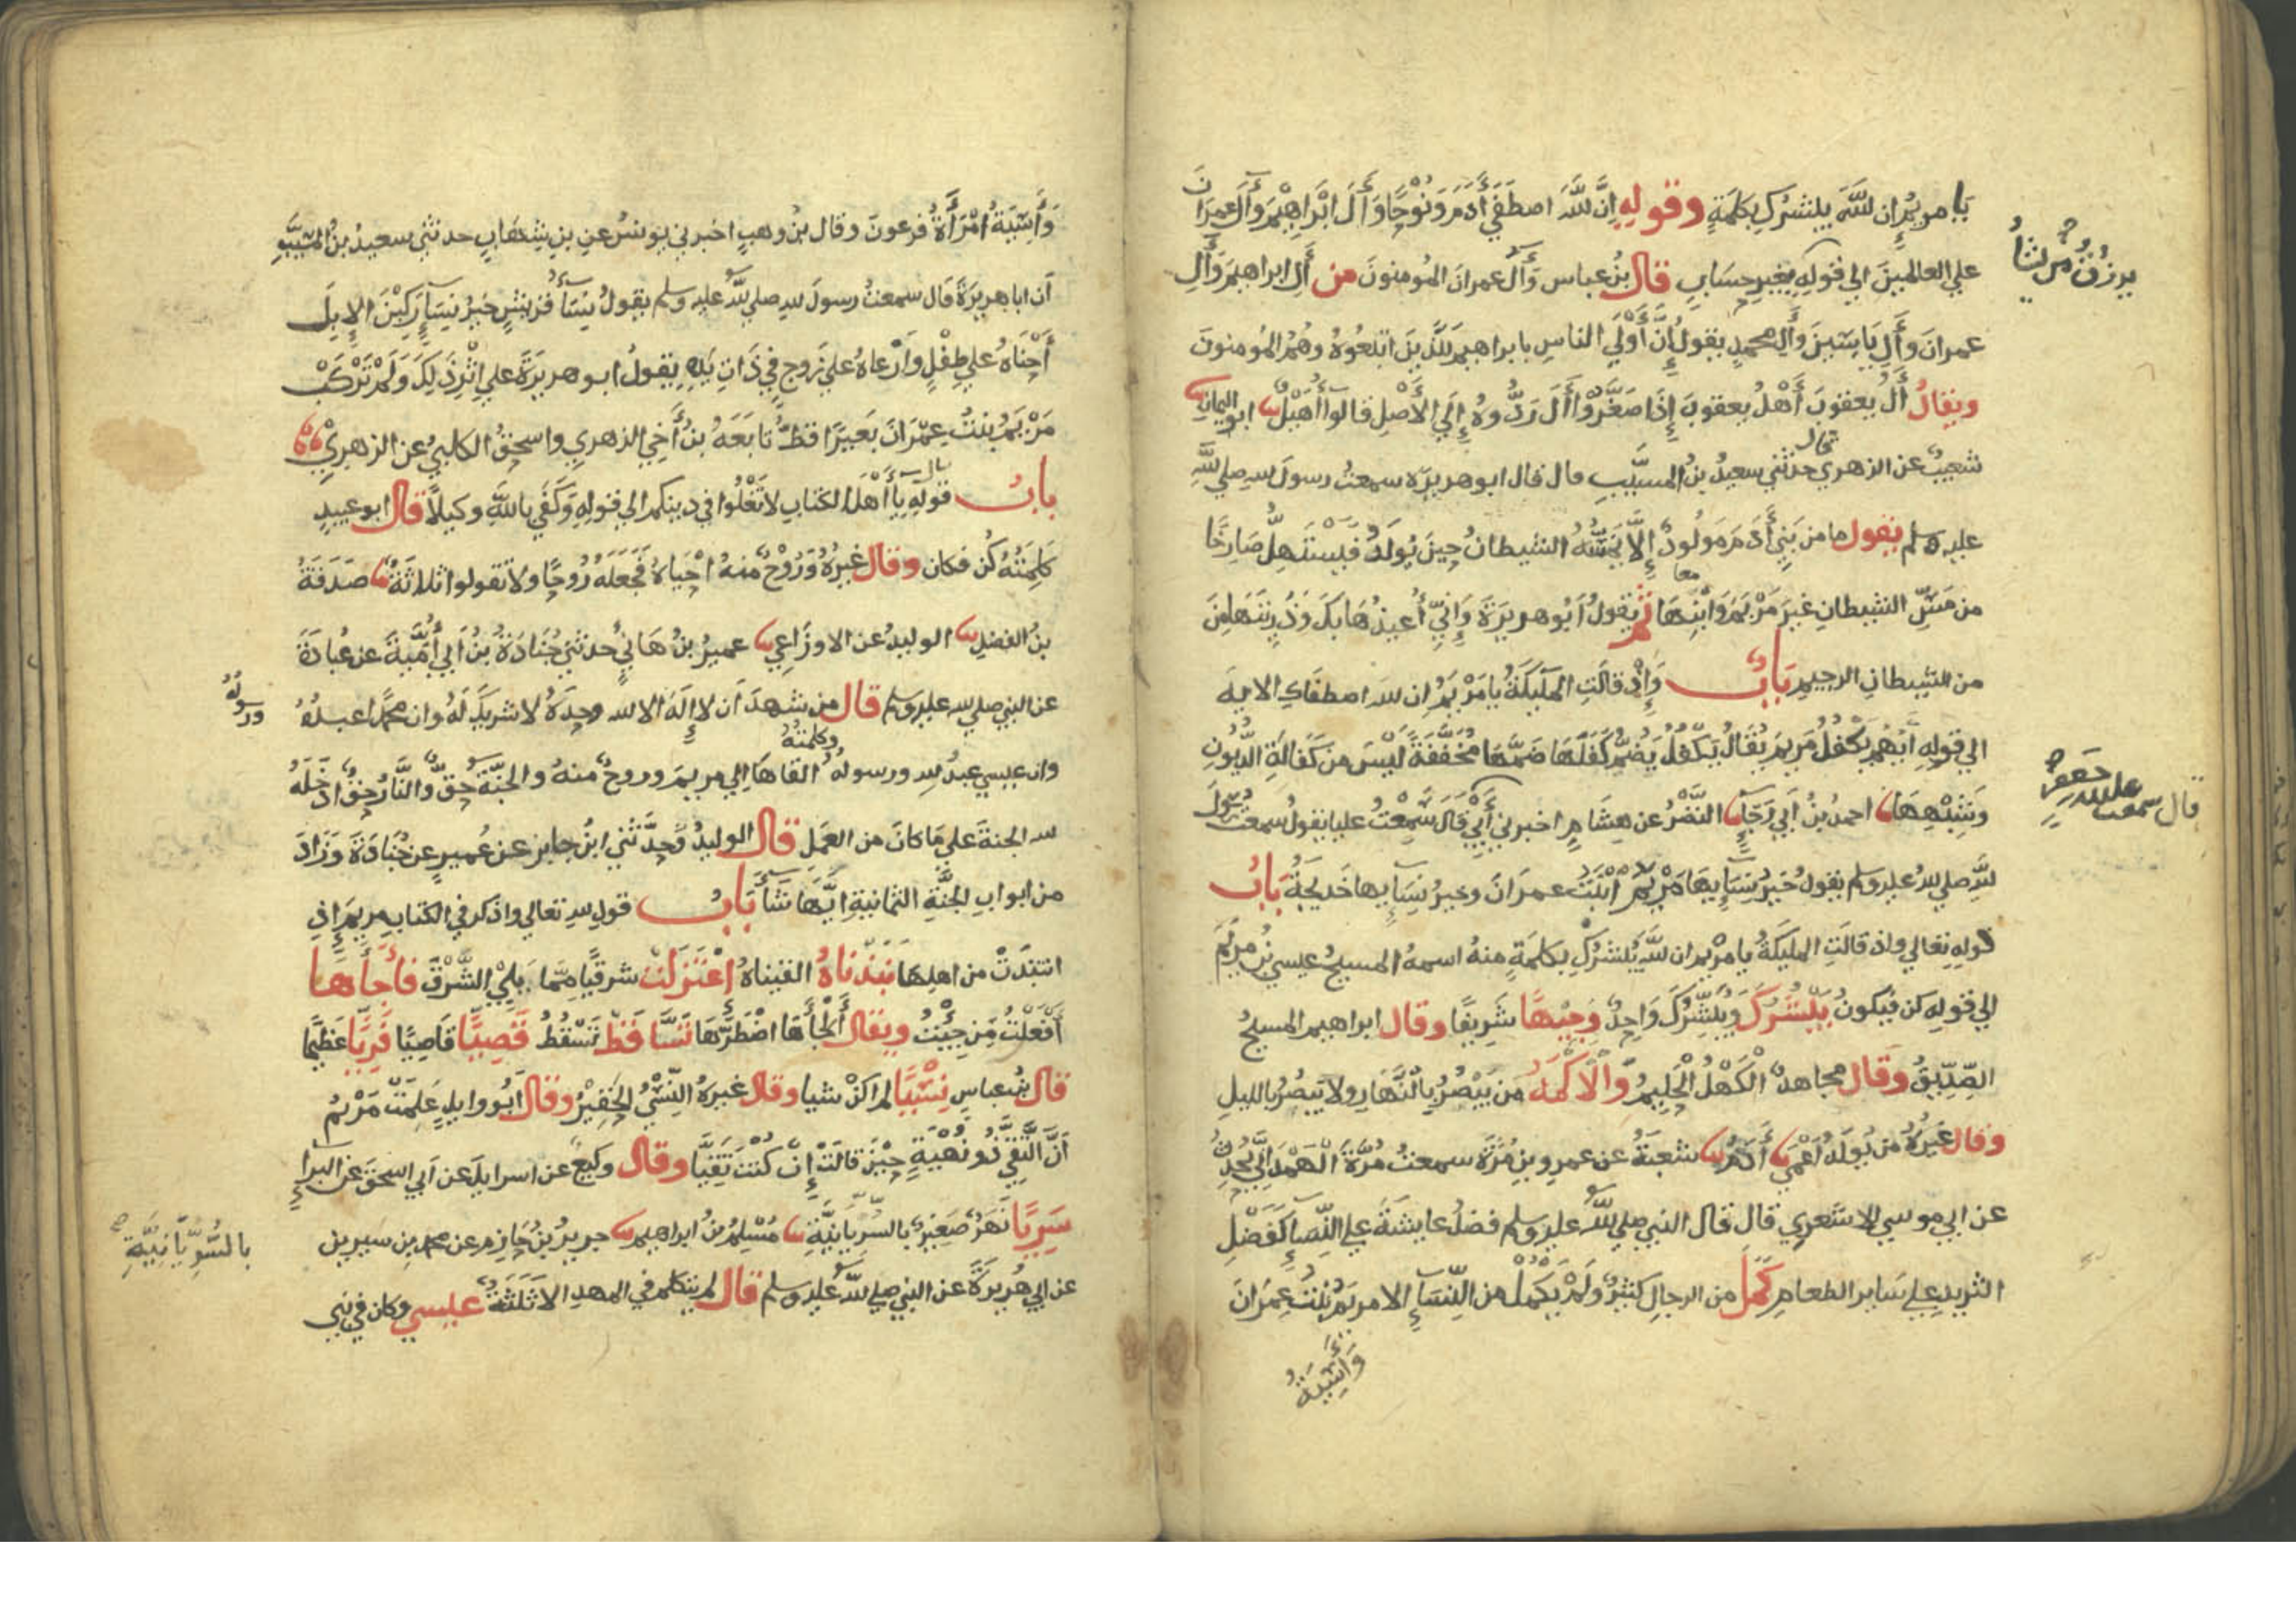 يا مريم إن الله يبشرك بكلمة وقوله إنَّ الله اصطفى آدم ونوحًا وآل ابراهيم وآل عمران
يرزق من يشاء
على العالمين الى قوله بغير حساب قال بن عباس وآل عمران المومنون من آل ابراهيم وآل
عمران وآل ياسين وآل محمد يقول إنَّ أولى الناس بابراهيم للذين اتبعوه وهم المومنون
ويقال آل يعقوب أهل يعقوب إذا صغّروا آل ردّوه إلى الأصل قالوا أهيل ابو اليمان
شعيب عن الزهري قال حدثني سعيد بن المسيَّب قال قال ابو هريرة سمعت رسول الله صلى الله
عليه وسلم يقول ما من بني آدم مولود إلّا يمسّه الشيطان حين يولد فيستهلّ صارخًا
من مسّ الشيطان غير مريم وابنها ثم يقول ابو هريرة وإنّي أعيذها بك وذريتها من
من الشيطان الرجيم باب وإذ قالت الملٰيكة يا مريم ان الله اصطفاك الاية
الى قوله أيهم يكفل مريم يقال يكفل يضم كفلها ضمّها مخففة ليس من كفالة الديون
وشبهها احمد بن أبي رجاء النضر عن هشام اخبرني أبي قال سمعت عليا يقول سمعت رسول
قال سمعت عبد الله بن جعفر
الله صلى الله عليه وسلم يقول خير نسآيها مريم ابنت عمران وخير نسآيها خديجة باب
قوله تعالى واذ قالت المليكة يا مريم ان الله يبشرك بكلمة منه اسمه المسيح عيسى بن مريم
الى قوله كن فيكون يبشرك ويبشرك واحد وجيهًا شريفا وقال ابراهيم المسيح
الصّدّيق وقال مجاهد الكهل الحليم والاكمه من يبصر بالنهار ولا يبصر بالليل
وقال غيره من يولد أعمى آدم شعبة عن عمرو بن مرّة سمعت مرّة الهمداني يحدث
عن ابي موسى الاشعري قال قال النبي صلى الله عليه وسلم فضل عايشة على النسآء كفضل
الثريد على سآير الطعام كمل من الرجال كثير ولم يكمل من النسآء الا مريم بنت عمران
وآسية
وآسية امرأة فرعون وقال بن وهب اخبرني يونس عن بن شهاب حدثني سعيد بن المسيّب
أن ابا هريرة قال سمعت رسول الله صلى الله عليه وسلم يقول نسآء قريش خير نسآء ركبن الإبل
أحناه على طفل وأرعاه على زوج في ذات يده يقول ابو هريرة على إثر ذلك ولم تركب
مريم بنت عمران بعيرًا قطّ تابعه بن أخي الزهري واسحق الكلبي عن الزهري
باب قوله يا أهل الكتاب لا تغلوا في دينكم الى قوله وكفى بالله وكيلًا قال ابو عبيد
كلمته كن فكان وقال غيره وروح منه احياه فجعله روحًا ولا تقولوا ثلاثة صدقة
بن الفضل الوليد عن الاوزاعي عمير بن هاني حدثني جنادة بن أبي أمية عن عبادة
عن النبي صلى الله عليه وسلم قال من شهد أن لا إله الا الله وحده لا شريك له وان محمدًا عبده
ورسوله
وان عيسى عبد الله ورسوله وكلمته القاها إلى مريم وروح منه والجنّة حقّ والنّار حق ادخله
الله الجنة على ما كان من العمل قال الوليد وحدّثني ابن جابر عن عمير عن جنادة وزاد
من ابواب الجنّة الثمانية أيّها شآء باب قول الله تعالى واذكر في الكتاب مريم إذ
انتبذت من اهلها نبذناه القيناه إعتزلت شرقيًا ممّا يلي الشّرق فأجأها
أفعلت من جيت ويقال ألجأها اضطرّها تسّاقط تسقط قصيّا قاصيًا فريًّا عظيمًا
قال بن عباس نسيًّا لم اكن شيا وقال غيره النّسي الحقير وقال أبو وايل علمت مريم
أنّ التّقيّ ذو نهية حين قالت إن كنت تقيّا وقال وكيع عن اسرايل عن أبي اسحق عن البرآء
سريًّا نهر صغير بالسريانيّة مسلم بن ابراهيم جرير بن حازم عن محمد بن سيرين
بالسّريانيّة
عن ابي هريرة عن النبي صلى الله عليه وسلم قال لم يتكلم في المهد الا ثلٰثة عيسى وكان في بني